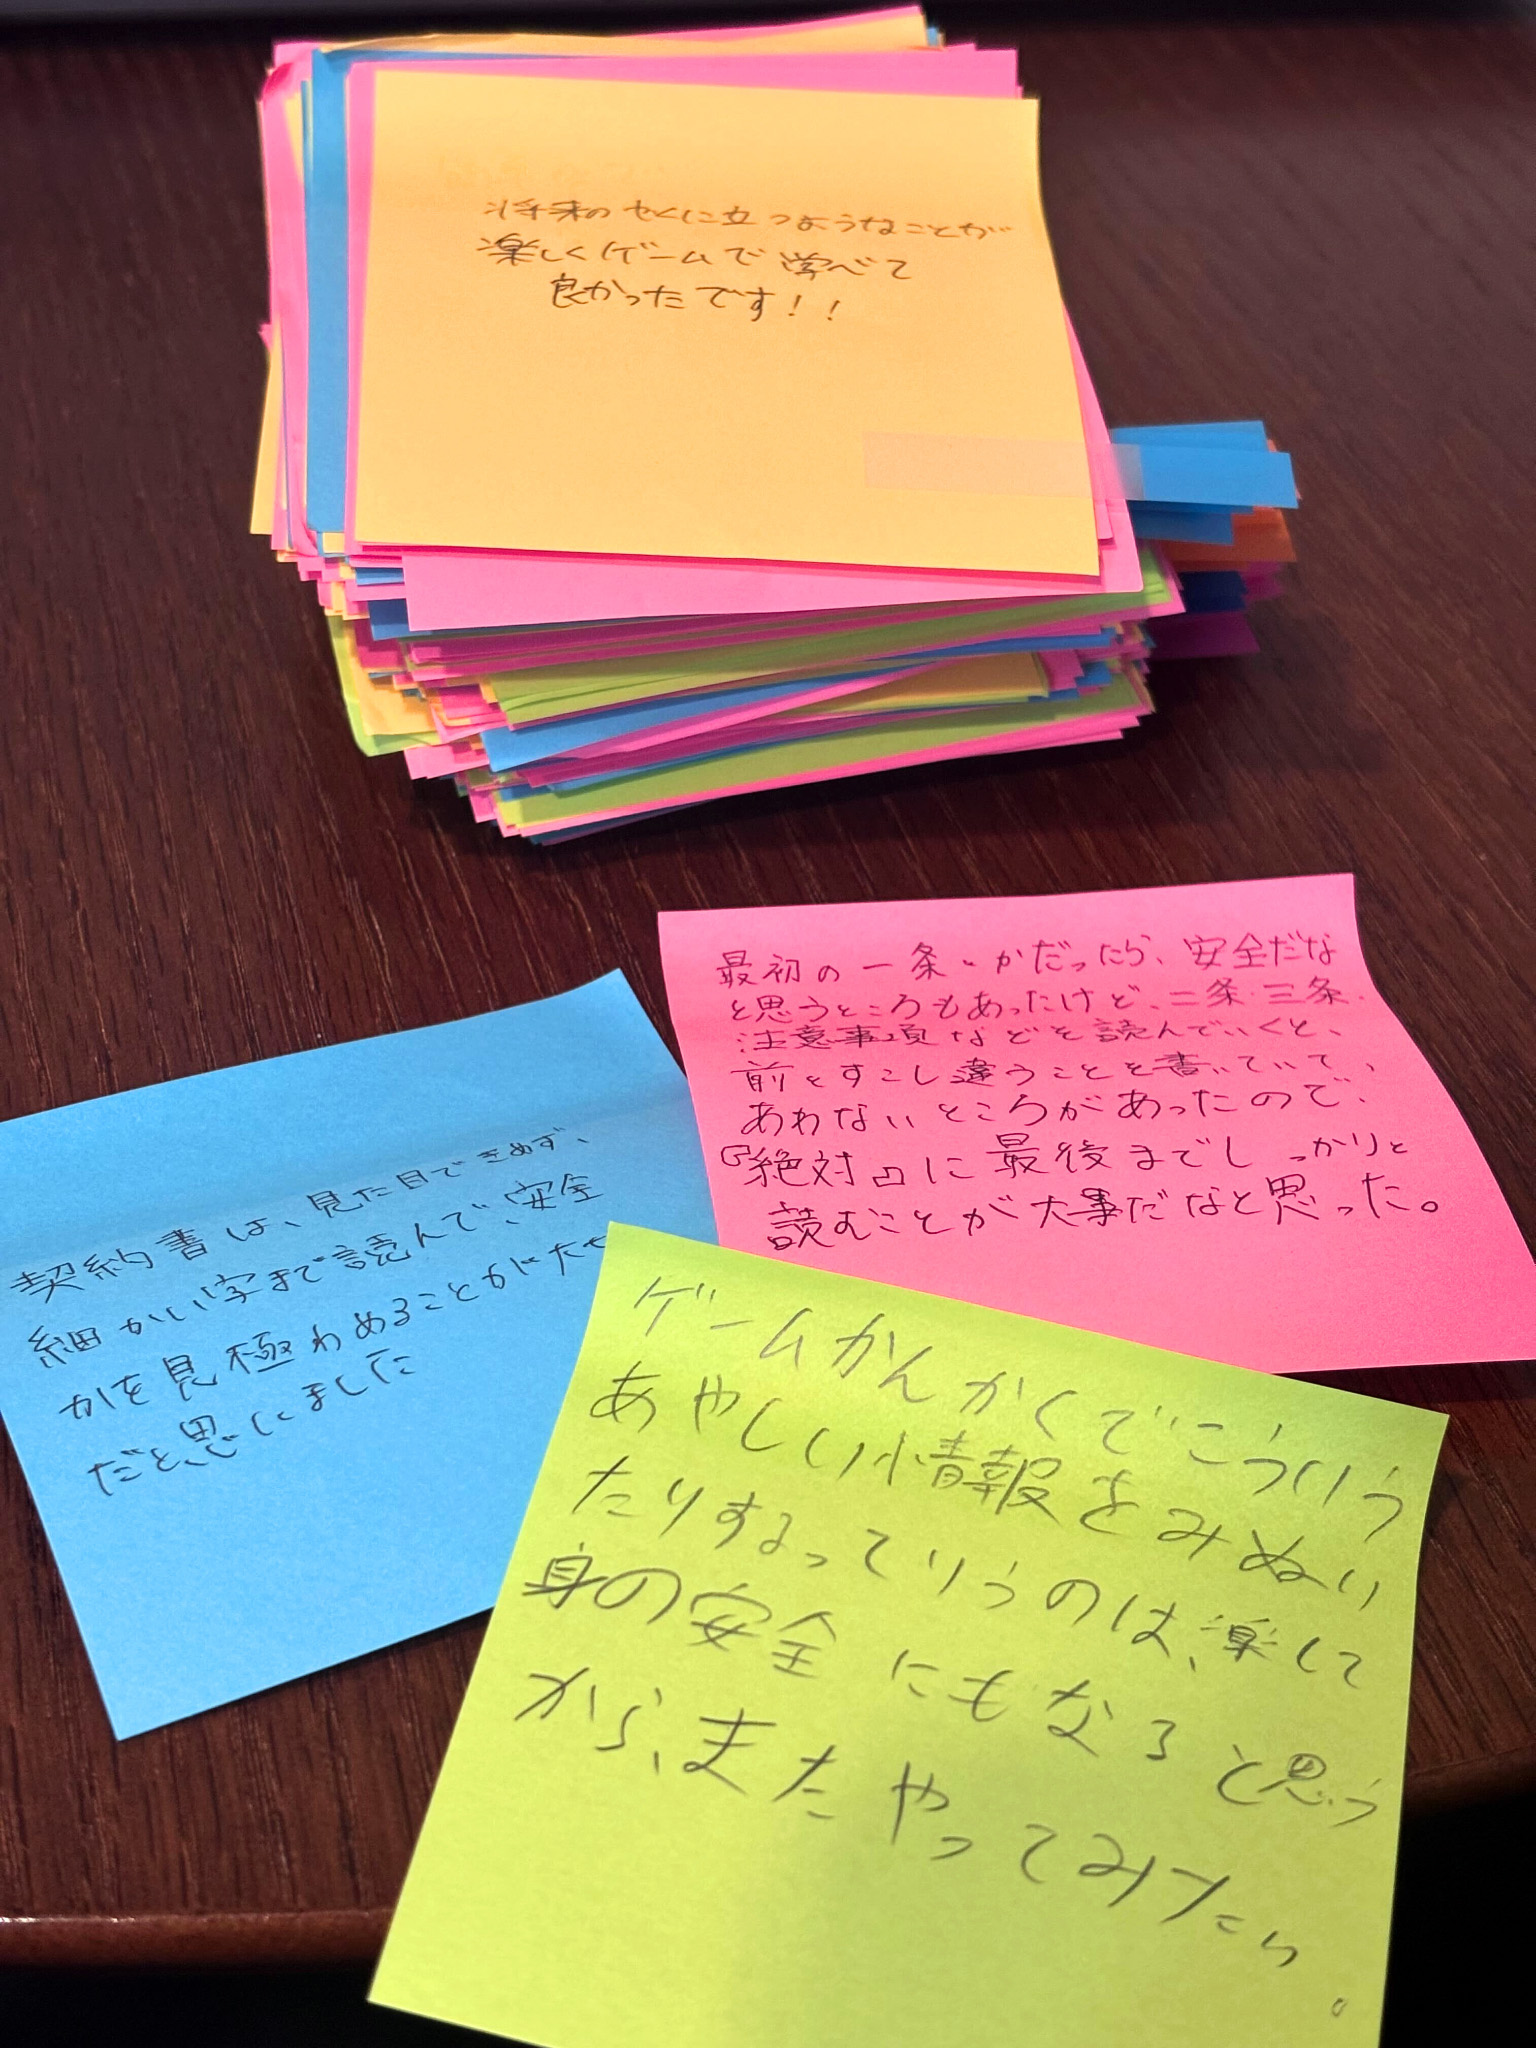 将来のやくに立つようなことが
楽しくゲームで学べて
良かったです!!
最初の一条・かだったら、安全だな
と思うところもあったけど、二条・三条・
注意事項などを読んでいくと、
前とすこし違うことを書いていて、
あわないところがあったので、
『絶対』に最後までしっかりと
読むことが大事だなと思った。
契約書は、見た目できめず、
細かい字まで読んで、安全
かを見極わめることが大せ
だと、思いました
ゲームかんかくでこういう
あやしい情報をみぬい
たりするっていうのは、楽して
身の安全にもなると思う
から、またやってみたい。